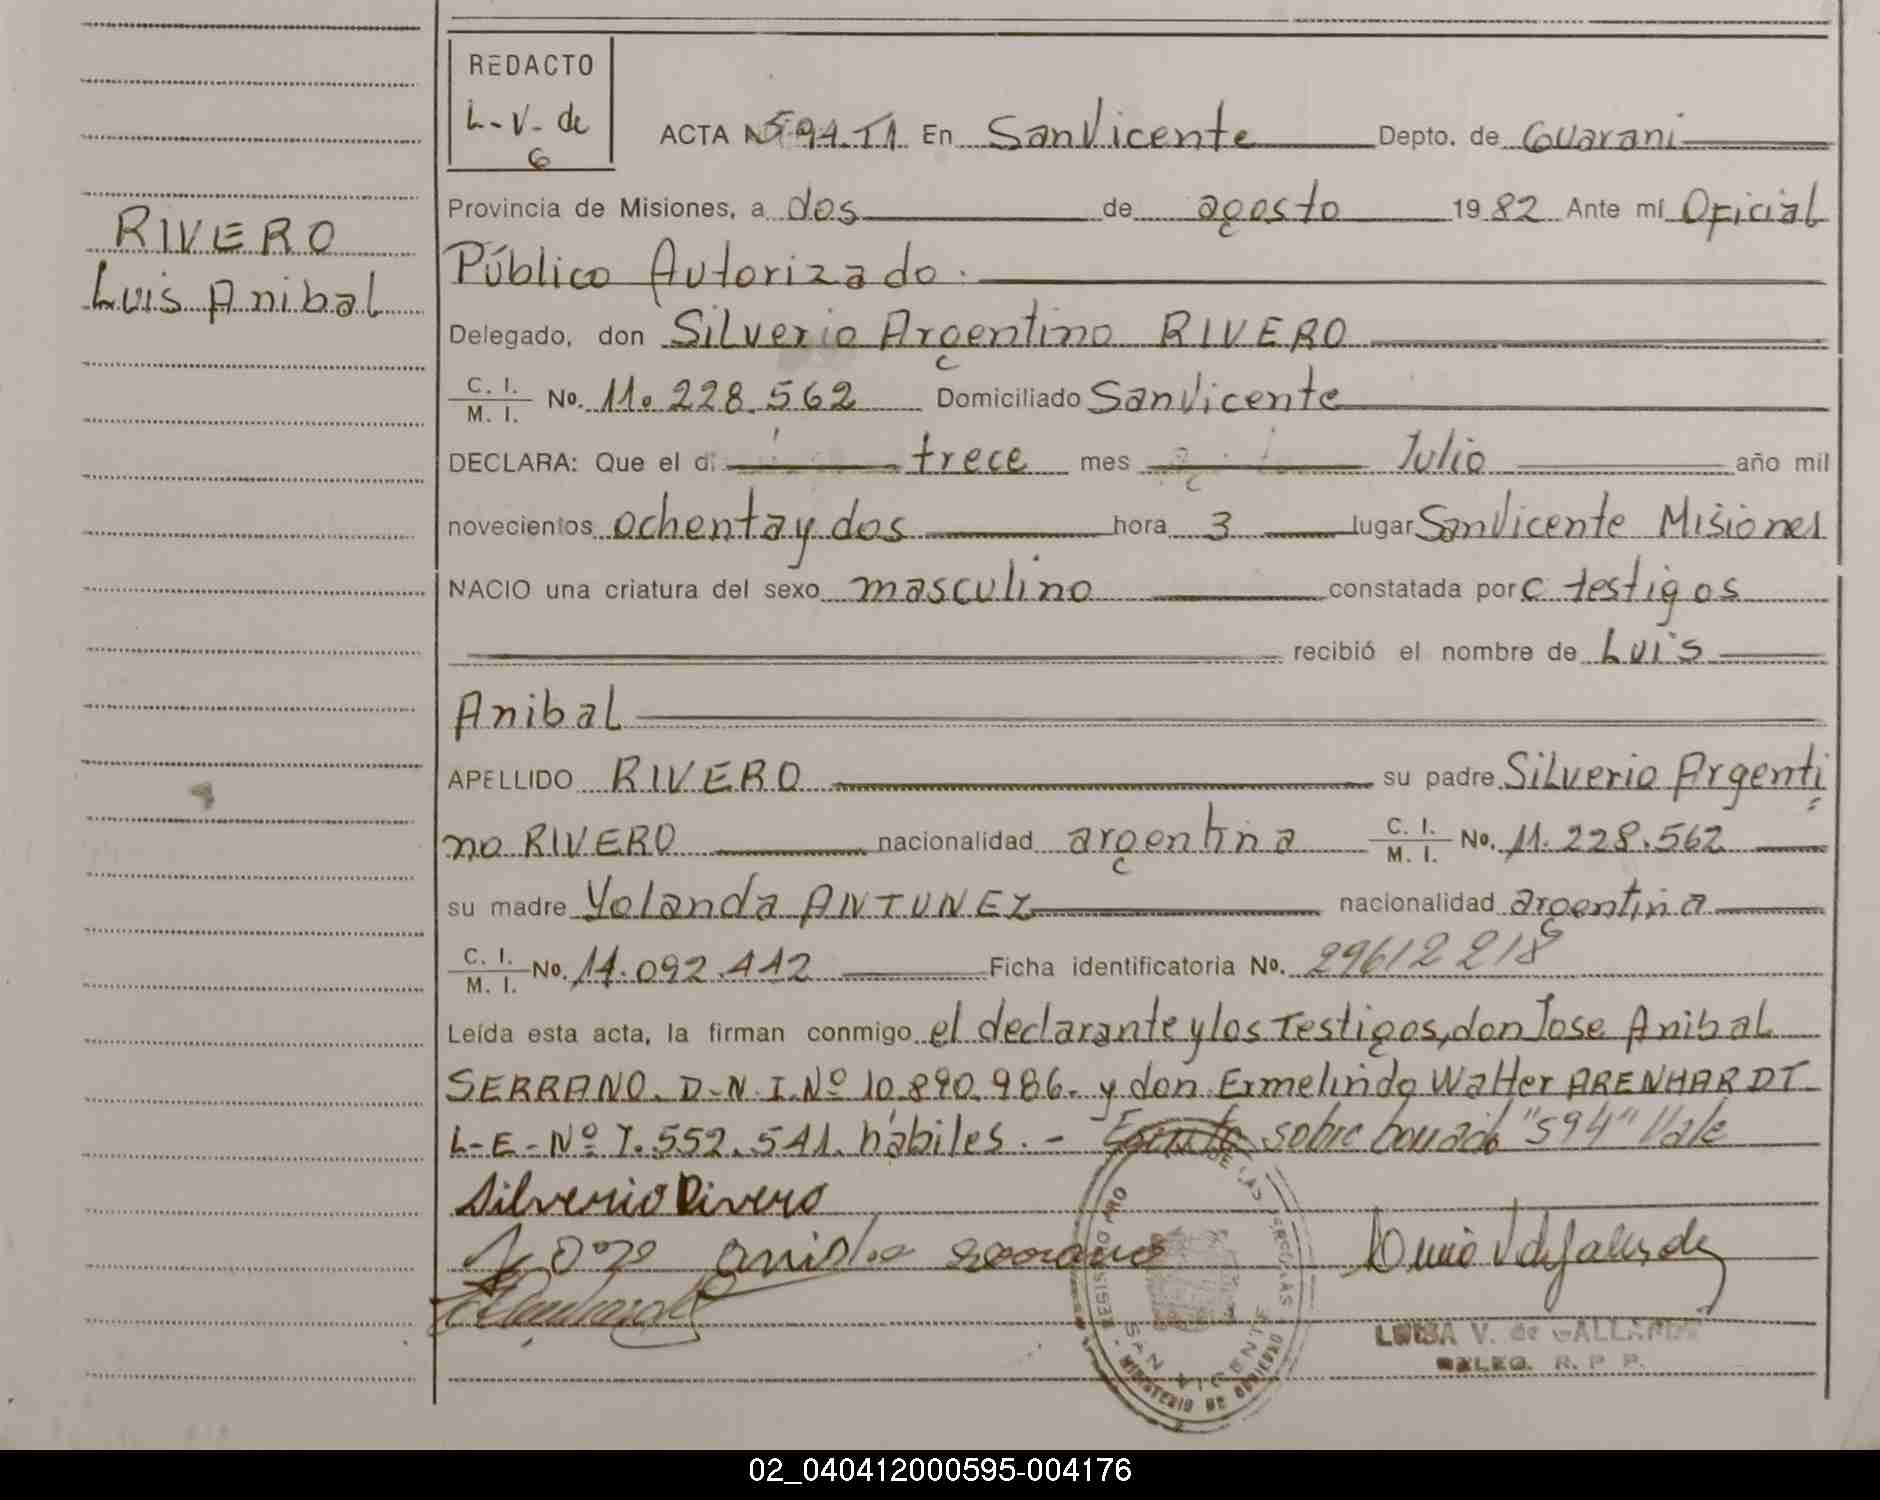 REDACTO
L-V- de
G
ACTA Nº 594.T1 En SanVicente Depto. de Guarani
Provincia de Misiones, a dos de agosto 1982 Ante mí Oficial
RIVERO
Público Autorizado.
Luis Anibal
Delegado, don Silverio Argentino RIVERO
C. I.
M. I. No. 11.228.562 Domiciliado SanVicente
DECLARA: Que el dí trece mes Julio año mil
novecientos ochenta y dos hora 3 lugar SanVicente Misiones
NACIO una criatura del sexo masculino constatada por c testigos
recibió el nombre de Luis
Anibal
APELLIDO RIVERO su padre Silverio Argenti
no RIVERO nacionalidad argentina C. I. M. I. No. 11.228.562
su madre Yolanda ANTUNEZ nacionalidad argentina
C. I.
M. I. No. 11.092.112 Ficha identificatoria No. 29612218
Leída esta acta, la firman conmigo el declarante y los Testigos, don Jose Anibal
SERRANO. D-N-I.Nº 10.890.986.- y don Ermelindo Walter ARENHARDT
L-E-Nº 7.552.541. hábiles.- Escrito sobre borrado "594" Vale
Silverio Rivero
SAN VICENTE
MINISTERIO DE GOBIERNO
LUISA V. de GALLARDO
DELEG. R. P. P.
02_040412000595-004176